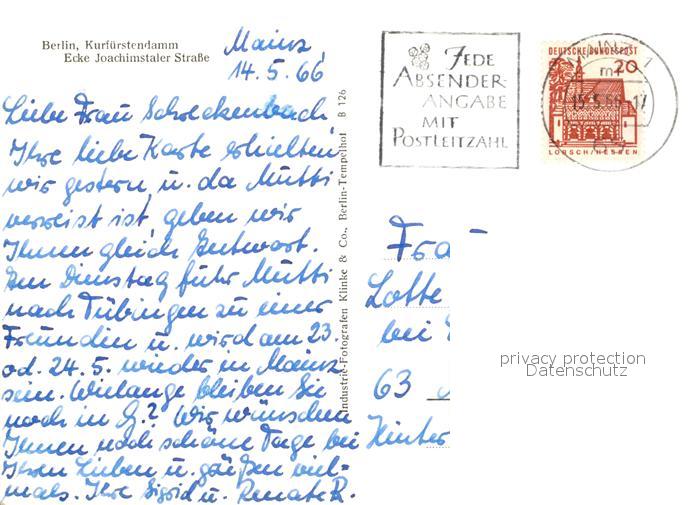 Berlin, Kurfürstendamm
Ecke Joachimstaler Straße
Mainz,
14.5.66
Liebe Frau Schreckenbach
Ihre liebe Karte erhielten
wir gestern, u. da Mutti
verreist ist, geben wir
Ihnen gleich Antwort.
Am Dienstag fuhr Mutti
nach Tübingen zu einer
Freundin u. wird am 23.
od. 24.5. wieder in Mainz
sein. Wielange bleiben Sie
noch in G.? Wir wünschen
Ihnen noch schöne Tage bei
Ihren Lieben u. grüßen viel-
mals. Ihre Sigrid u. Renate R.
Industrie-Fotografen Klinke & Co., Berlin-Tempelhof B 126
JEDE
ABSENDER-
ANGABE
MIT
POSTLEITZAHL
DEUTSCHE BUNDESPOST
20
LORSCH/HESSEN
15.5.66-17
Frau
Lotte
bei
63
Hinter
privacy protection
Datenschutz